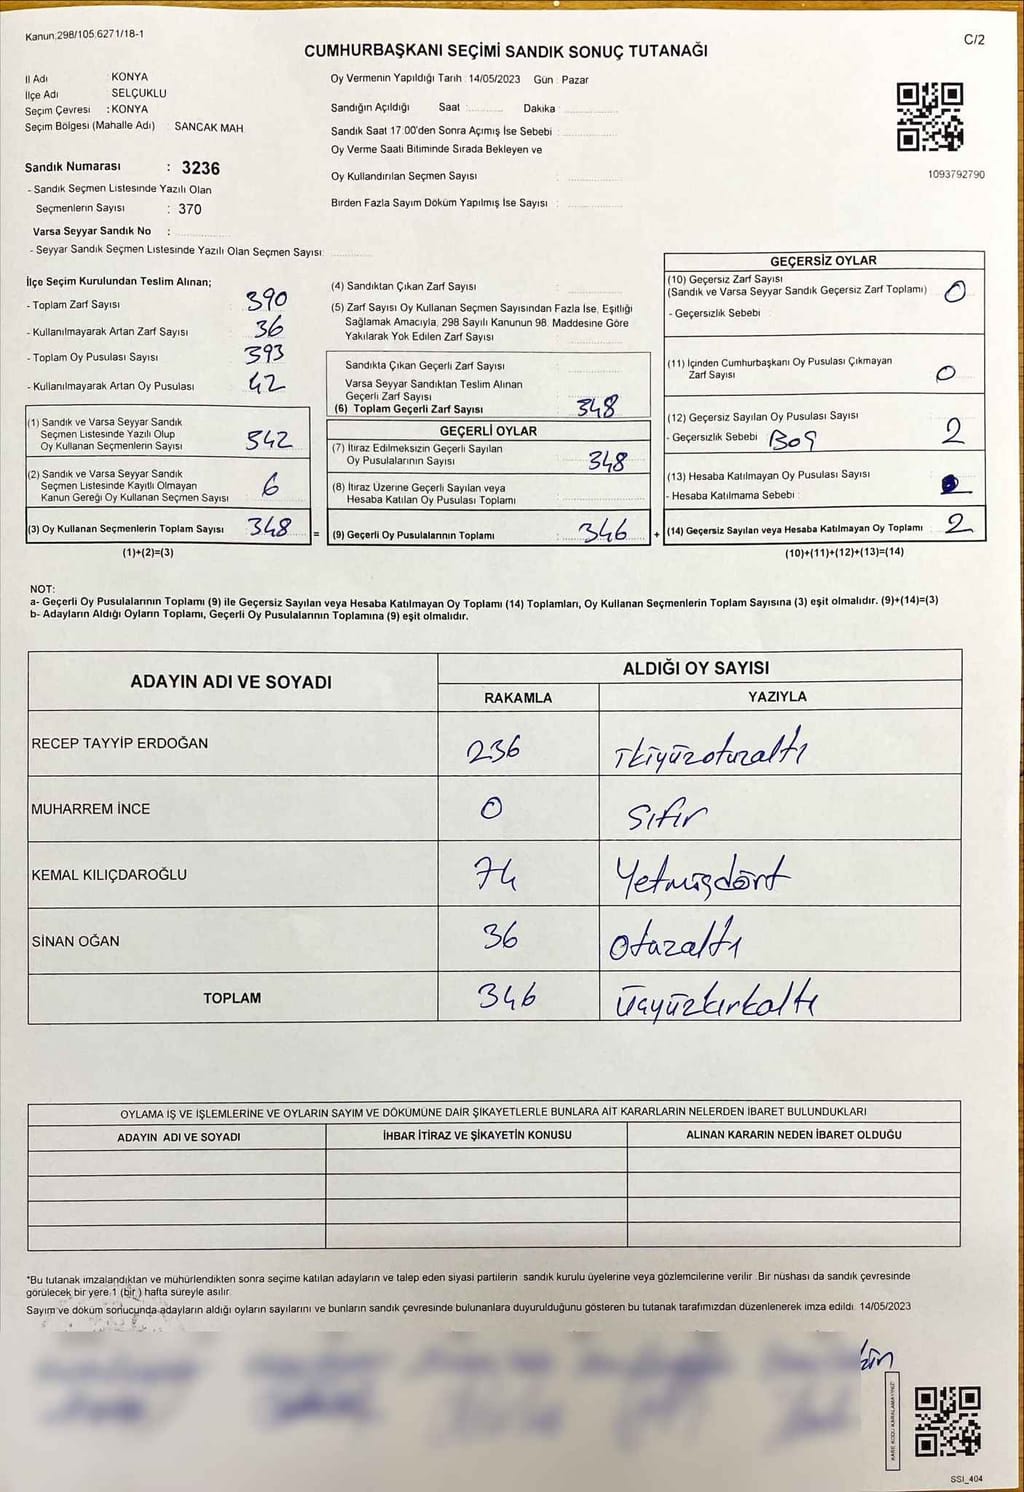 Kanun.298/105.6271/18-1
C/2
CUMHURBAŞKANI SEÇİMİ SANDIK SONUÇ TUTANAĞI
İl Adı : KONYA
İlçe Adı : SELÇUKLU
Seçim Çevresi : KONYA
Seçim Bölgesi (Mahalle Adı) SANCAK MAH
Sandık Numarası : 3236
- Sandık Seçmen Listesinde Yazılı Olan
Seçmenlerin Sayısı : 370
Varsa Seyyar Sandık No :
- Seyyar Sandık Seçmen Listesinde Yazılı Olan Seçmen Sayısı:
Oy Vermenin Yapıldığı Tarih : 14/05/2023 Gün : Pazar
Sandığın Açıldığı Saat : Dakika :
Sandık Saat 17:00'den Sonra Açımış İse Sebebi :
Oy Verme Saati Bitiminde Sırada Bekleyen ve
Oy Kullandırılan Seçmen Sayısı :
Birden Fazla Sayım Döküm Yapılmış İse Sayısı :
1093792790
İlçe Seçim Kurulundan Teslim Alınan;
- Toplam Zarf Sayısı 390
- Kullanılmayarak Artan Zarf Sayısı 36
- Toplam Oy Pusulası Sayısı 393
- Kullanılmayarak Artan Oy Pusulası 42
(1) Sandık ve Varsa Seyyar Sandık
Seçmen Listesinde Yazılı Olup
Oy Kullanan Seçmenlerin Sayısı 342
(2) Sandık ve Varsa Seyyar Sandık
Seçmen Listesinde Kayıtlı Olmayan
Kanun Gereği Oy Kullanan Seçmen Sayısı 6
(3) Oy Kullanan Seçmenlerin Toplam Sayısı 348 =
(1)+(2)=(3)
(4) Sandıktan Çıkan Zarf Sayısı :
(5) Zarf Sayısı Oy Kullanan Seçmen Sayısından Fazla İse, Eşitliği
Sağlamak Amacıyla, 298 Sayılı Kanunun 98. Maddesine Göre
Yakılarak Yok Edilen Zarf Sayısı :
Sandıkta Çıkan Geçerli Zarf Sayısı :
Varsa Seyyar Sandıktan Teslim Alınan
Geçerli Zarf Sayısı :
(6) Toplam Geçerli Zarf Sayısı : 348
GEÇERLİ OYLAR
(7) İtiraz Edilmeksizin Geçerli Sayılan
Oy Pusulalarının Sayısı : 348
(8) İtiraz Üzerine Geçerli Sayılan veya
Hesaba Katılan Oy Pusulası Toplamı :
(9) Geçerli Oy Pusulalarının Toplamı : 346 +
GEÇERSİZ OYLAR
(10) Geçersiz Zarf Sayısı
(Sandık ve Varsa Seyyar Sandık Geçersiz Zarf Toplamı) 0
- Geçersizlik Sebebi :
(11) İçinden Cumhurbaşkanı Oy Pusulası Çıkmayan
Zarf Sayısı 0
(12) Geçersiz Sayılan Oy Pusulası Sayısı 2
- Geçersizlik Sebebi BOŞ
(13) Hesaba Katılmayan Oy Pusulası Sayısı
- Hesaba Katılmama Sebebi :
(14) Geçersiz Sayılan veya Hesaba Katılmayan Oy Toplamı 2
(10)+(11)+(12)+(13)=(14)
NOT:
a- Geçerli Oy Pusulalarının Toplamı (9) ile Geçersiz Sayılan veya Hesaba Katılmayan Oy Toplamı (14) Toplamları, Oy Kullanan Seçmenlerin Toplam Sayısına (3) eşit olmalıdır. (9)+(14)=(3)
b- Adayların Aldığı Oyların Toplamı, Geçerli Oy Pusulalarının Toplamına (9) eşit olmalıdır.
ADAYIN ADI VE SOYADI
ALDIĞI OY SAYISI
RAKAMLA YAZIYLA
RECEP TAYYİP ERDOĞAN 236 ikiyüzotuzaltı
MUHARREM İNCE 0 Sıfır
KEMAL KILIÇDAROĞLU 74 Yetmişdört
SİNAN OĞAN 36 Otuzaltı
TOPLAM 346 Üçyüzkırkaltı
OYLAMA İŞ VE İŞLEMLERİNE VE OYLARIN SAYIM VE DÖKÜMÜNE DAİR ŞİKAYETLERLE BUNLARA AİT KARARLARIN NELERDEN İBARET BULUNDUKLARI
ADAYIN ADI VE SOYADI İHBAR İTİRAZ VE ŞİKAYETİN KONUSU ALINAN KARARIN NEDEN İBARET OLDUĞU
*Bu tutanak imzalandıktan ve mühürlendikten sonra seçime katılan adayların ve talep eden siyasi partilerin sandık kurulu üyelerine veya gözlemcilerine verilir. Bir nüshası da sandık çevresinde
görülecek bir yere 1 (bir ) hafta süreyle asılır.
Sayım ve döküm sonucunda adayların aldığı oyların sayılarını ve bunların sandık çevresinde bulunanlara duyurulduğunu gösteren bu tutanak tarafımızdan düzenlenerek imza edildi. 14/05/2023
KARE KODU KARALAMAYINIZ!
SSI_404